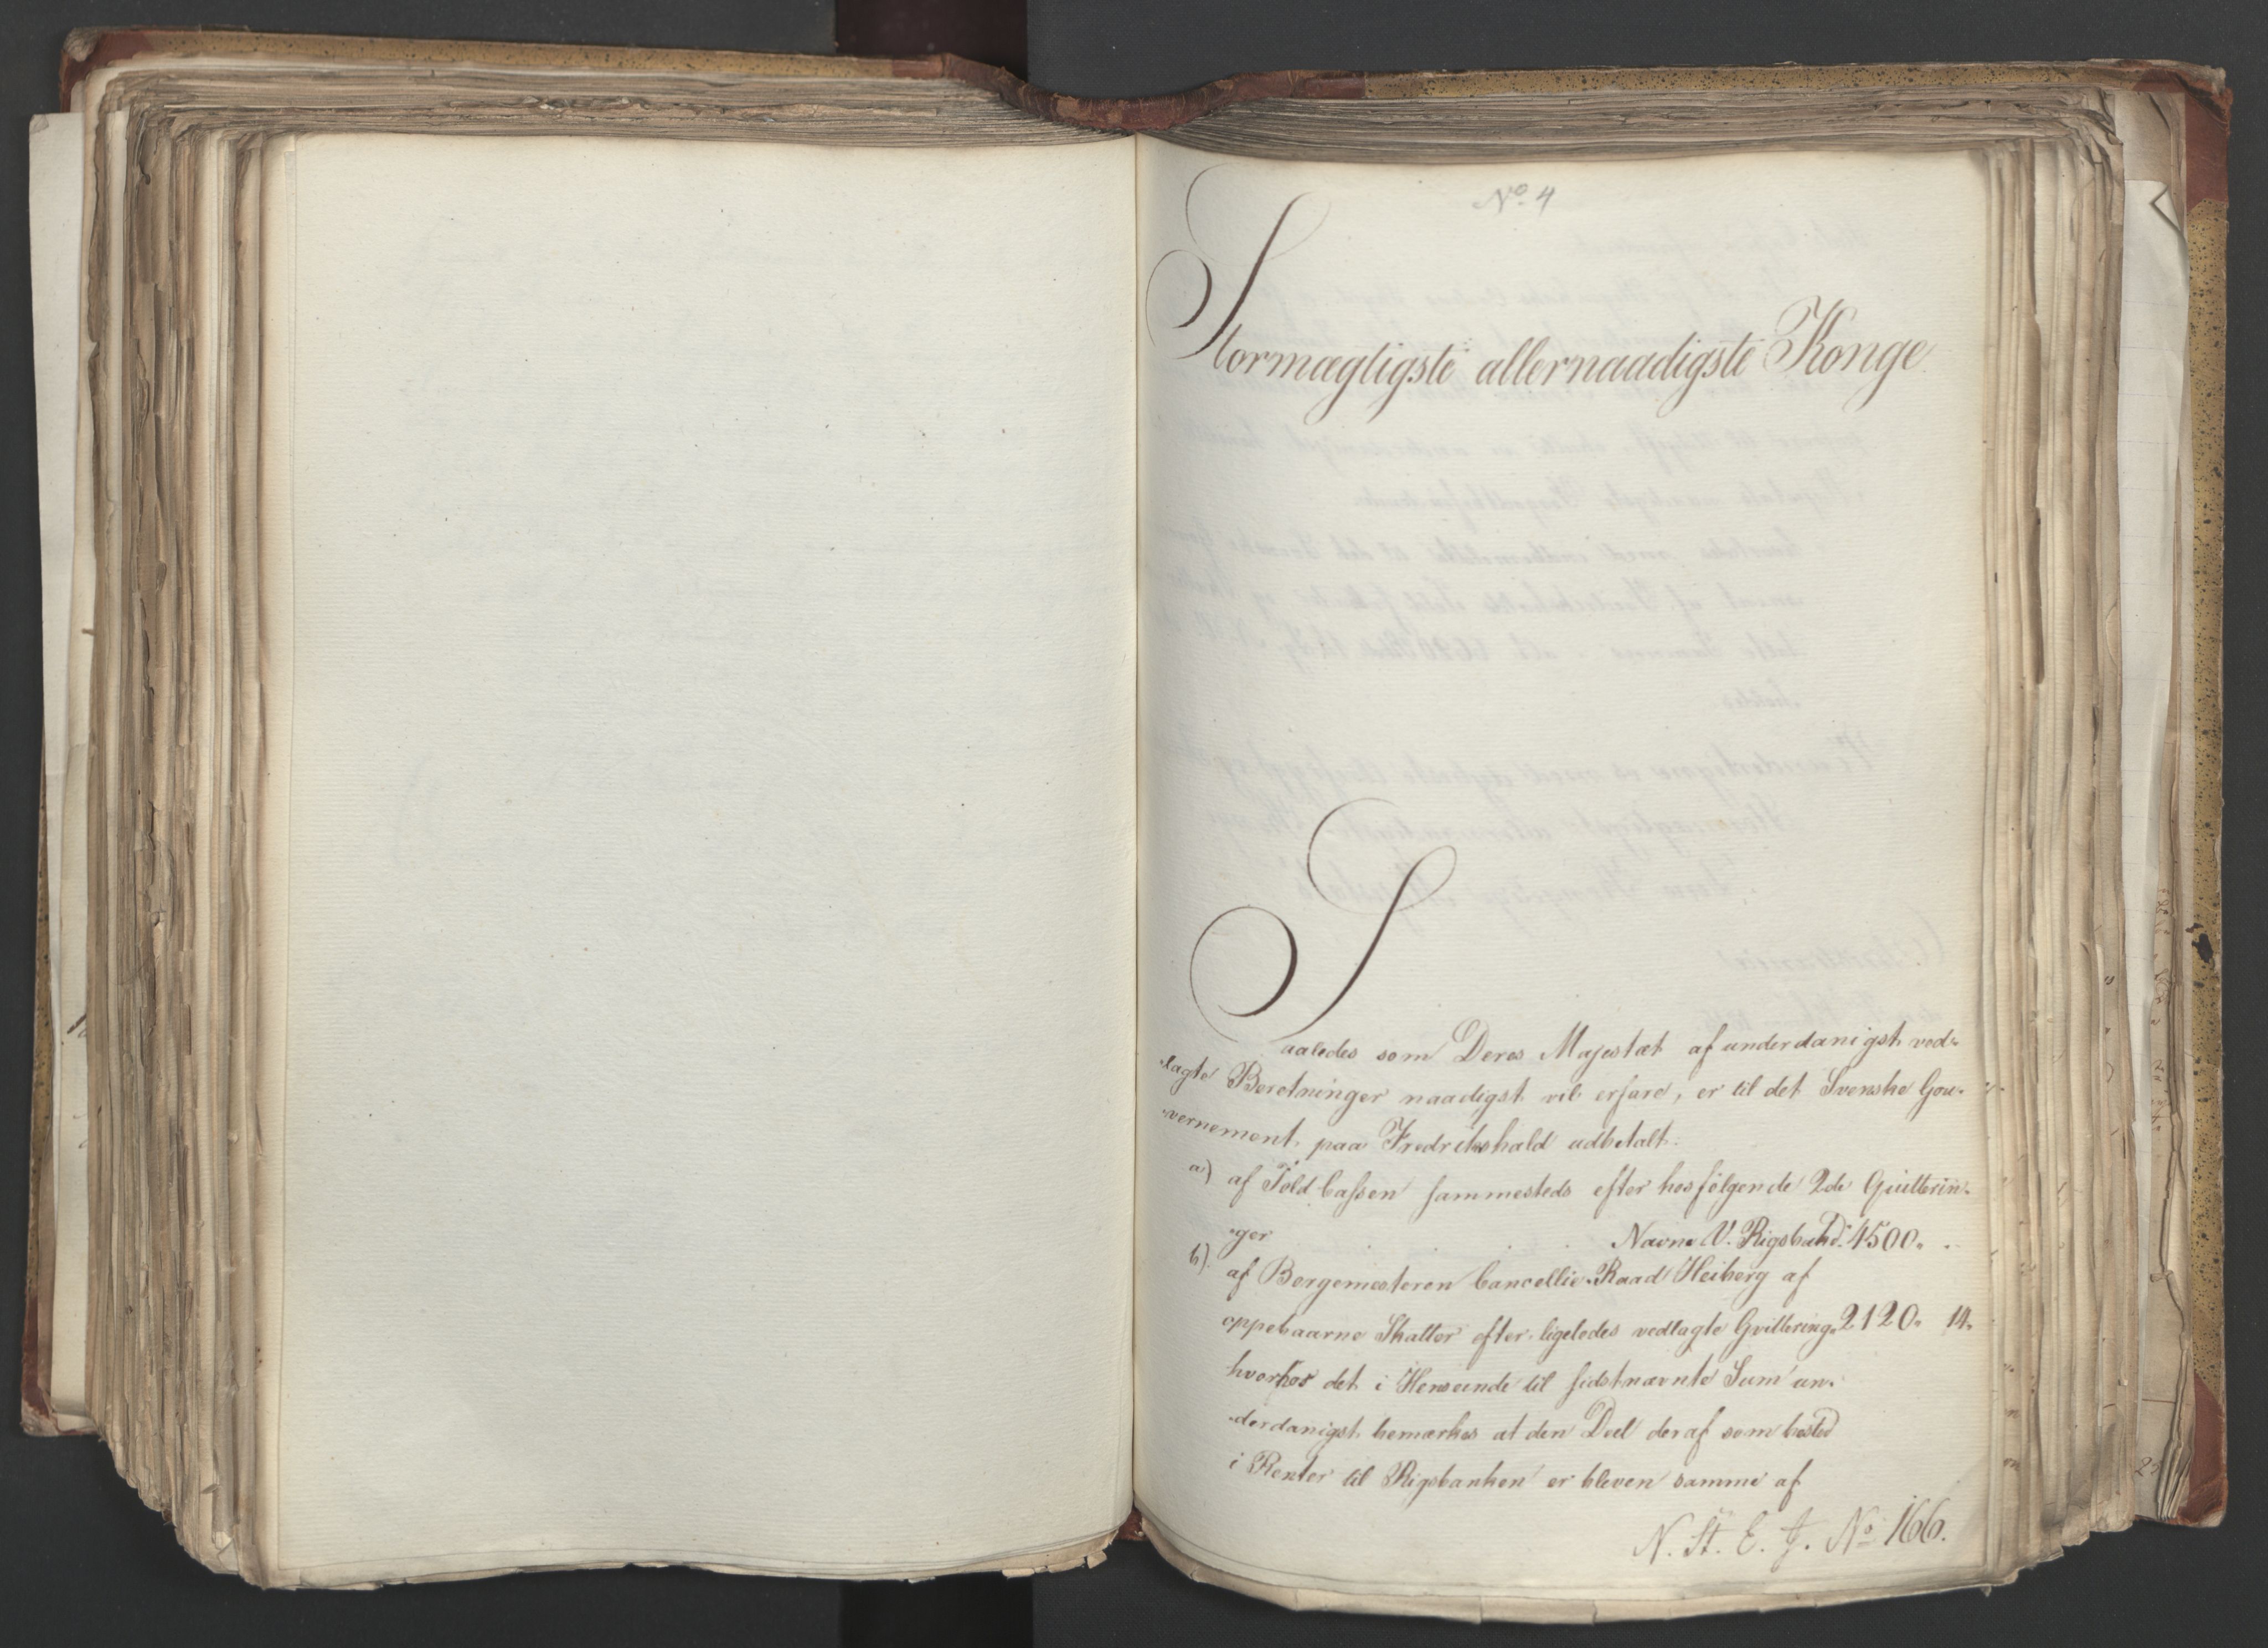 No. 4
Stormægtigste allernaadigste Konge
Saaledes som Deres Majestæt af underdanigst ved-
lagte Beretninger naadigst vil erfare, er til det Svenske Gou-
vernement, paa Fredrikshald udbetalt.
a) af Told Cassen sammesteds efter hosfølgende 2de Qvitterin-
ger . . Navne V. Rigsbankd. 4500. .
b) af Borgemesteren Cancellie-Raad Heiberg af
oppebaarne Skatter efter ligeledes vedlagte Qvittering. 2120. 14.
hvorhos det i Henseende til sidstnævnte Sum un-
derdanigst bemærkes at den Deel deraf som bestod
i Renter til Rigsbanken er bleven samme af
N. St. E. J. No 166.